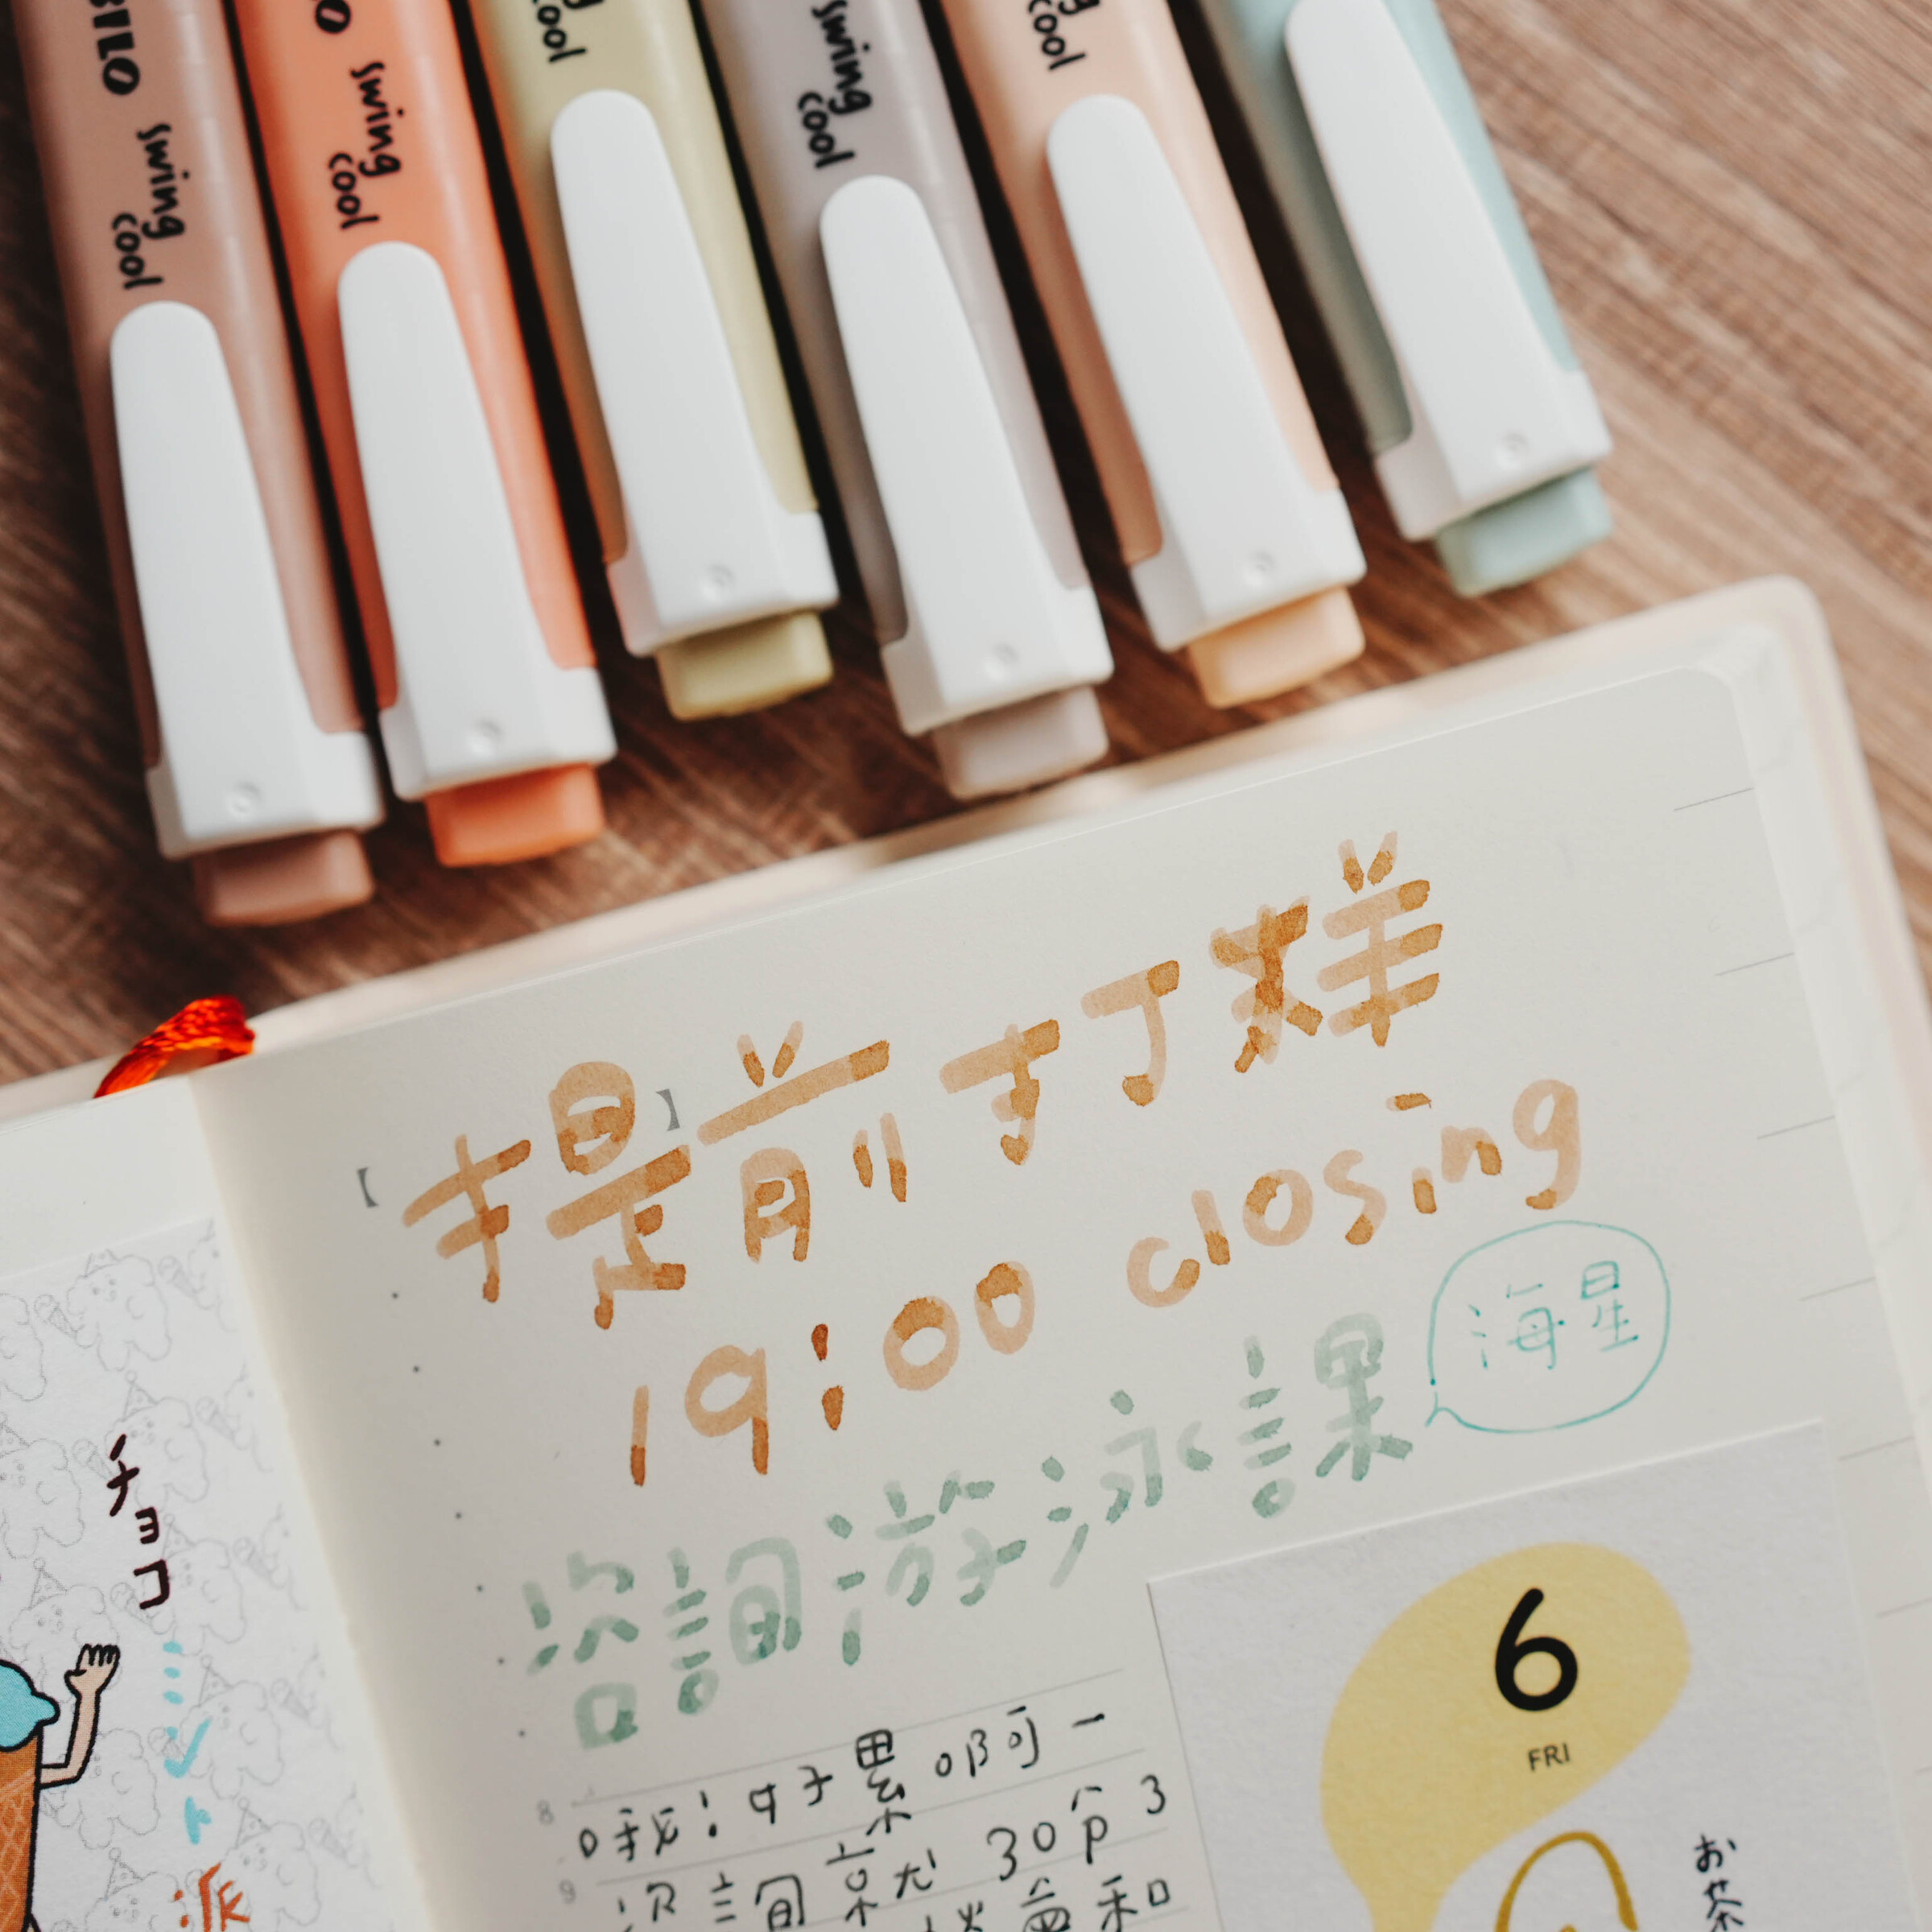 BILO swing cool
O swing cool
cool
swing cool
cool
【 】
提前打烊
19:00 closing
諮詢游泳課
海星
チョコ
派
6
FRI
お茶
8
哦!好累啊一
9
諮詢就30分3